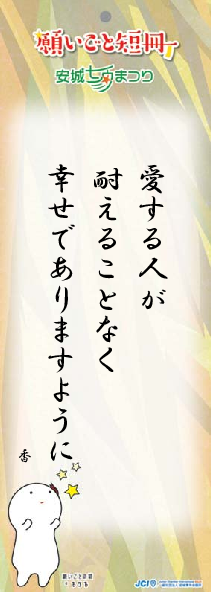 願いごと短冊
安城七夕まつり
愛する人が
耐えることなく
幸せでありますように
香
願いごと短冊
JCI